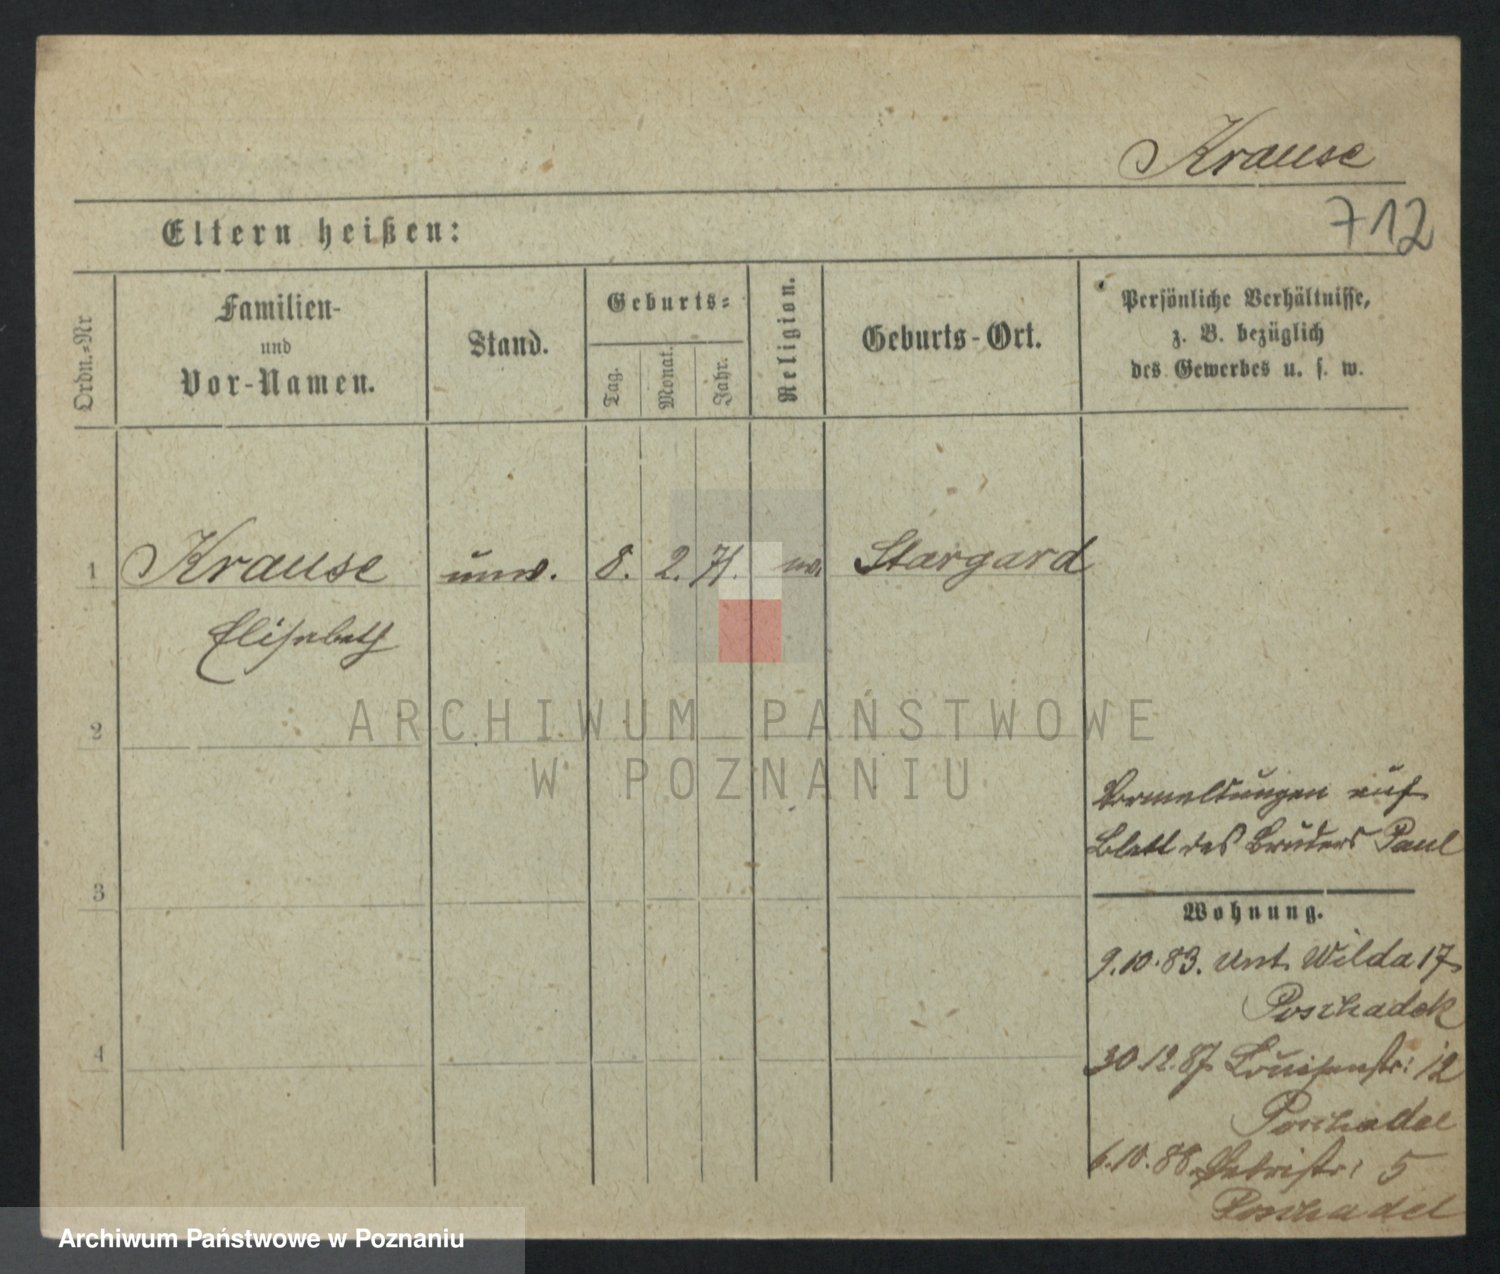 Krause
712
Eltern heißen:
Ordn.-Nr
Familien-
und
Vor-Namen.
Stand.
Geburts-
Tag.
Monat.
Jahr.
Religion.
Geburts-Ort.
Persönliche Verhältnisse,
z. B. bezüglich
des Gewerbes u. s. w.
1 Krause unv. 8. 2. 71. Stargard
Elisabeth
2
ARCHIWUM PAŃSTWOWE
W POZNANIU
Vormeldungen auf
Blatt des Bruders Paul
3
Wohnung.
9.10.83. Unt. Wilda 17
Poschadel
4
30.12.87 Louisenstr: 12
Poschadel
6.10.88. Petristr: 5
Poschadel
Archiwum Państwowe w Poznaniu